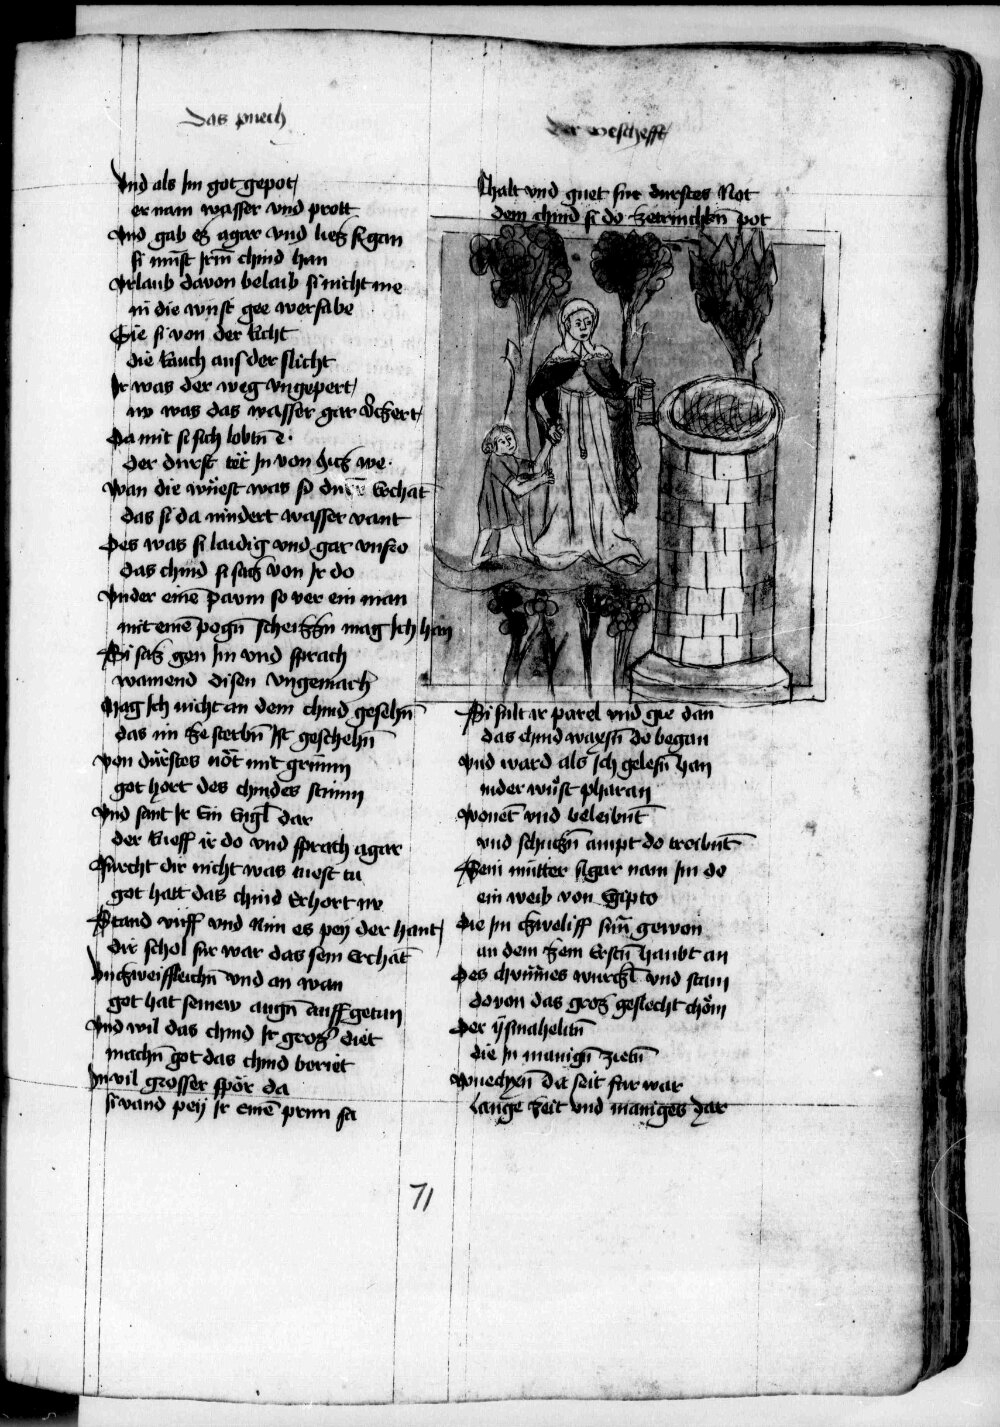 Das puech
Der Geschefft
Vnd als Im got gepot
er nam wasser vnd prott
Vnd gab es agar vnd lies sy gan
si must Irm chind han
Vrlaub davon belaib si nicht me
in die wüst gee wersabe
Gie si von der Richt
die Rauch aus der slicht
Ir was der weg vngepert
nv was das wasser gar
Da mit si sich lobtn̄ e
der durst tet In von hicz we
Wan die wüest was so
das si da nindert wasser vant
Des was si laidig vnd gar vnfro
das chind si sacz von Ir do
Vnder eine͞ pavm so ver ein man
mit eine͞ pogn̄ mag Ich han
Si sas gen Im vnd sprach
wainend disen vngemach
Mag Ich nicht an dem chind gesehn̄
das im ze sterbn̄ Ist geschehn̄
Von dürstes nöt mit grimm
got hort des chindes stimm
Vnd sant Ir Ein Engl dar
der Rieff ir do vnd sprach agar
Fürcht dir nicht was tuest tu
got hatt das chind Erhort nv
Stand auff vnd Nim es pey der hant
dir schol für war das sein Erchāt
Vnczweiffleichn̄ vnd an wan
got hat seinew augn̄ auff getan
Vnd wil das chind Ir gros diet
machn̄ got das chind beriet
In vil grosser spör da
si vand pey Ir eine͞ prun sa
Chalt vnd guet für durstes Not
dem chind si do zetrinchkn̄ pot
Si fult ir parel vnd gie dan
das chind waxsn̄ do began
Vnd ward als Ich gelesn̄ han
inder wüst pharan
Wonēt vnd beleibūt
vnd schuczn̄ ampt do treibūt
Sein mutter Agar nam Im do
ein weib von Egipto
Die Im zweliff sün̄ gewon
an dem zem Erstn̄ haubt an
Des chunnes wurczl vnd stam
dovon das gros geslecht chöm
Der ysmahelitn̄
die In manign̄ zietn̄
Wuechsn̄ dar seit fur war
Lange zeit vnd maniges Jar
71